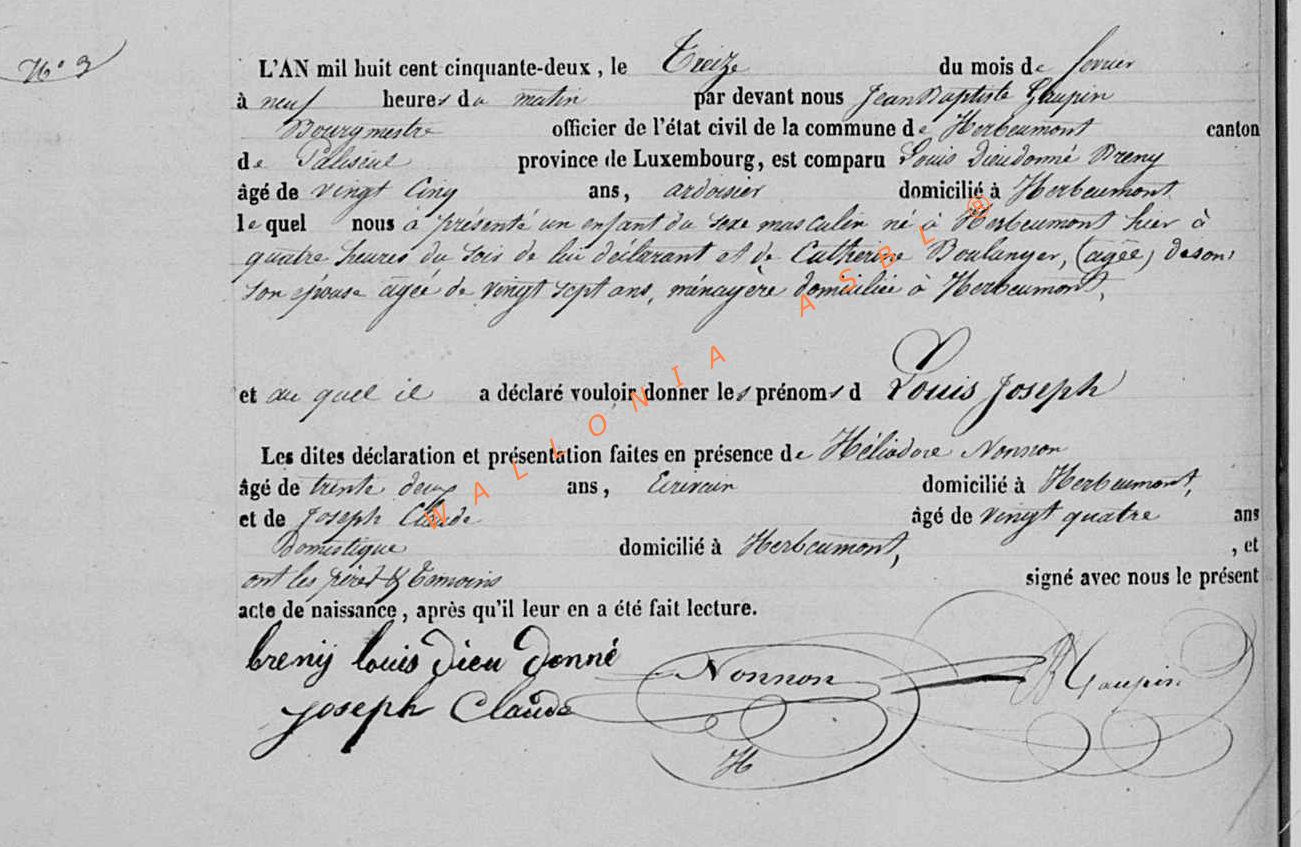 N° 3
L'AN mil huit cent cinquante-deux, le Treize du mois de fevrier
à neuf heures du matin par devant nous Jean Baptiste Gaupin
Bourgmestre officier de l'état civil de la commune de Herbeumont canton
de Paliseul province de Luxembourg, est comparu Louis Dieudonné Breny
âgé de vingt cinq ans, ardoisier domicilié à Herbeumont
lequel nous à présenté un enfant du sexe masculin né à Herbeumont hier à
quatre heures du soir de lui déclarant et de Catherine Boulanger, (agée)
son épouse âgée de vingt sept ans, ménagère domiciliée à Herbeumont,
et au quel il a déclaré vouloir donner les prénoms d Louis Joseph
Les dites déclaration et présentation faites en présence de Héliodore Nonnon
âgé de trente deux ans, Ecrivain domicilié à Herbeumont,
et de Joseph Claude âgé de vingt quatre ans
Domestique domicilié à Herbeumont, , et
ont les père & temoins signé avec nous le présent
acte de naissance, après qu'il leur en a été fait lecture.
breny louis dieu donné Nonnon Gaupin
joseph Claude
H
WALLONIA ASBL ®